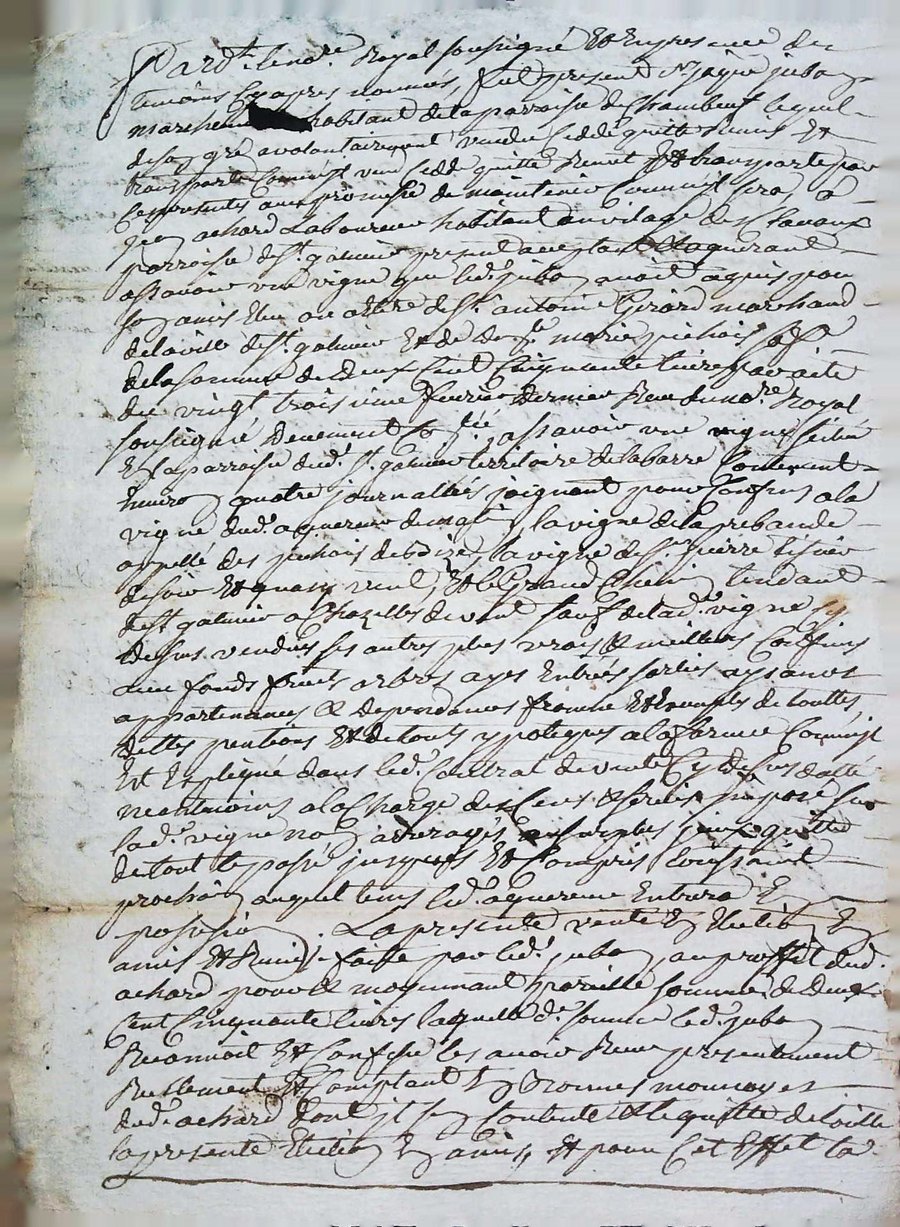 Pard.t le no.re Royal sousigné Et En presence des
temoins Cy apres nommés, fut present s.r jaque juban
marchand habitant de la parroisse de Chambeuf lequel
de son gré a volontairement vendu ceddé quitte Remis Et
transporté Comme jl vend Cedde quitte Remet Et transporte par
Ces presentes avec promesse de maintenir Comme jl sera a
jean achard Laboureur habitant au vilage des Clavaux
parroisse de s.t galmier present acceptant Et aquerant
assavoir une vigne que led. juban auoit aquis pour
son amis Elu ou a Elire de s.r antoine Girard marchand
de la ville de s.t galmier Et de de.lle marie pichois sa f.e
de la somme de deux Cent Cinquante livres par acte
du vingt troisieme fevrier dernier Receu du no.re Royal
soussigné deuement Co.llé, assavoir une vigne scituée
En la parroisse dud. s.t galmier territoire de la barre Contenant
Environ quatre journallées joignant pour Confins a la
vigne dud. aquereur de matin, la vigne de la prebande
appellé des pichois de bize, la vigne de s.r Pierre
de soir Et quasy vent, Et le Grand Chemin tendant
de s.t galmier a Chazelles de vent sauf de lad. vigne Cy
dessus vendue ses autres plus vrais & meilleurs Confins
avec fonds fruits arbres ayes Entrées sorties aysances
appartenances & dependances franche Et Exempte de touttes
dettes pentions Et de touts ypoteques a la forme Comme jl
Est Expliqué dans led. Contrat de vente Cy dessus datté
neantmoins a la Charge des Cens & servis jmposé sur
lad. vigne non arrerages
de tout le passé jusques Et Compris toussaint
prochain auquel tems led. aquereur Entrera En
possession. La presente vente En Election En
amis Et Remise faite par led. juban au proffit dud.
achard pour & moyennant pareille somme de deux
Cent Cinquante livres laquelle d. somme led. juban
Reconnoit Et Confesse les avoir Receu presentement
Reellement Et Comptant En bonnes monnoyes
dud. achard dont jl s'en Contente Et le quitte de toutte
la presente Election En amis, Et pour Cet Effet la